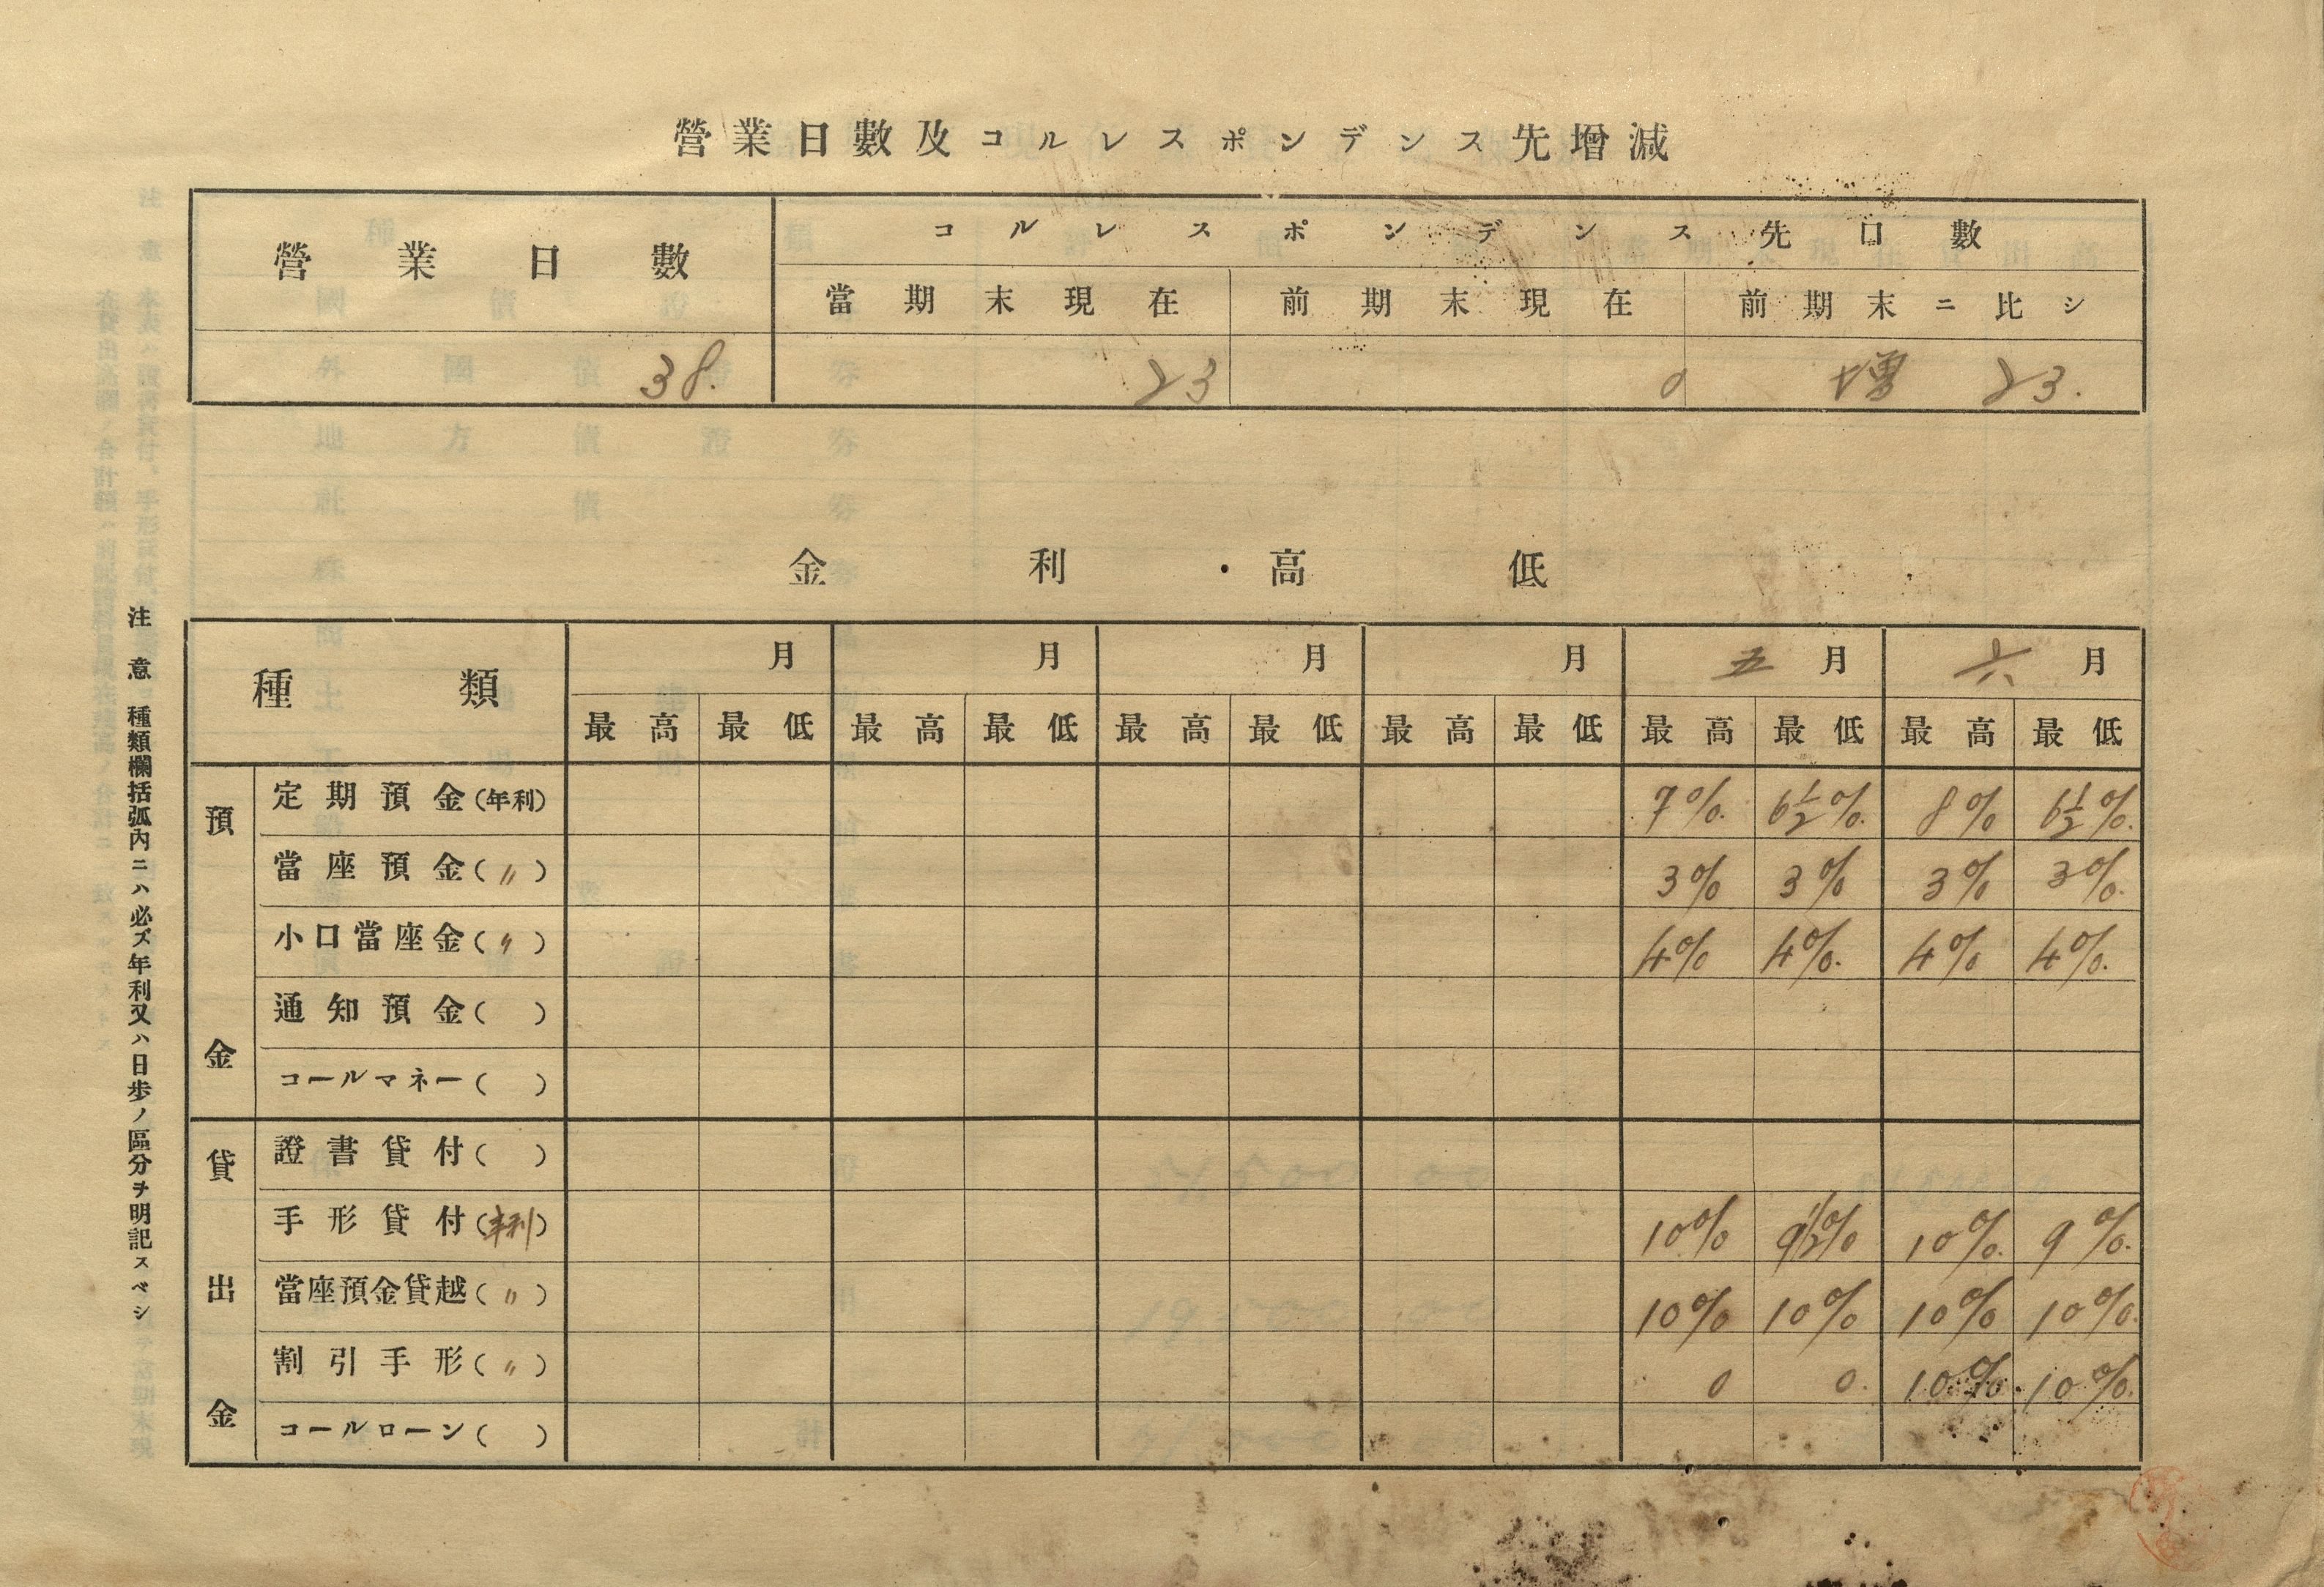 營業日數及コルレスポンデンス先增減
營業日數 コルレスポンデンス先口數
當期末現在 前期末現在 前期末ニ比シ
38. 23 0 增 23.
金利・高低
種類 月 月 月 月 五月 六月
最高 最低 最高 最低 最高 最低 最高 最低 最高 最低 最高 最低
預金
定期預金(年利) 7% 6½% 8% 6½%
當座預金(〃) 3% 3% 3% 3%
小口當座金(〃) 4% 4% 4% 4%
通知預金( )
コールマネー( )
貸出金
證書貸付( )
手形貸付(年利) 10% 9½% 10% 9%
當座預金貸越(〃) 10% 10% 10% 10%
割引手形(〃) 0 0 10% 10%
コールローン( )
注意 種類欄括弧內ニハ必ズ年利又ハ日步ノ區分ヲ明記スベシ